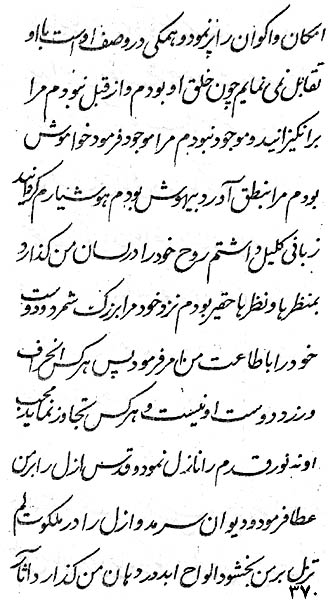 امکان و اکوان را پر نمود و همکی در وصف اوست با او
تقابل نمی نمایم چون خلق او بودم و از قبل نبودم مرا
برانکیزانید و موجود نبودم مرا موجود فرمود خاموش
بودم مرا بنطق آورد بیهوش بودم هوشیارم کردانید
زبانی کلیل داشتم روح خود را در لسان من کذارد
بمنظرها و نظرها حقیر بودم نزد خود مرا بزرک شمرد و دوست
خود را باطاعت من امر فرمود پس هرکس انحراف
ورزد دوست او نیست و هرکس تجاوز نماید محب
او نه نور قدم را نازل نمود و قدس ازل را بر من
عطا فرمود و دیوان سرمد و ازل را در ملکوت لم
یزل بر من بخشود الواح ابد در دهان من کذارد و آثار
۳۷۰